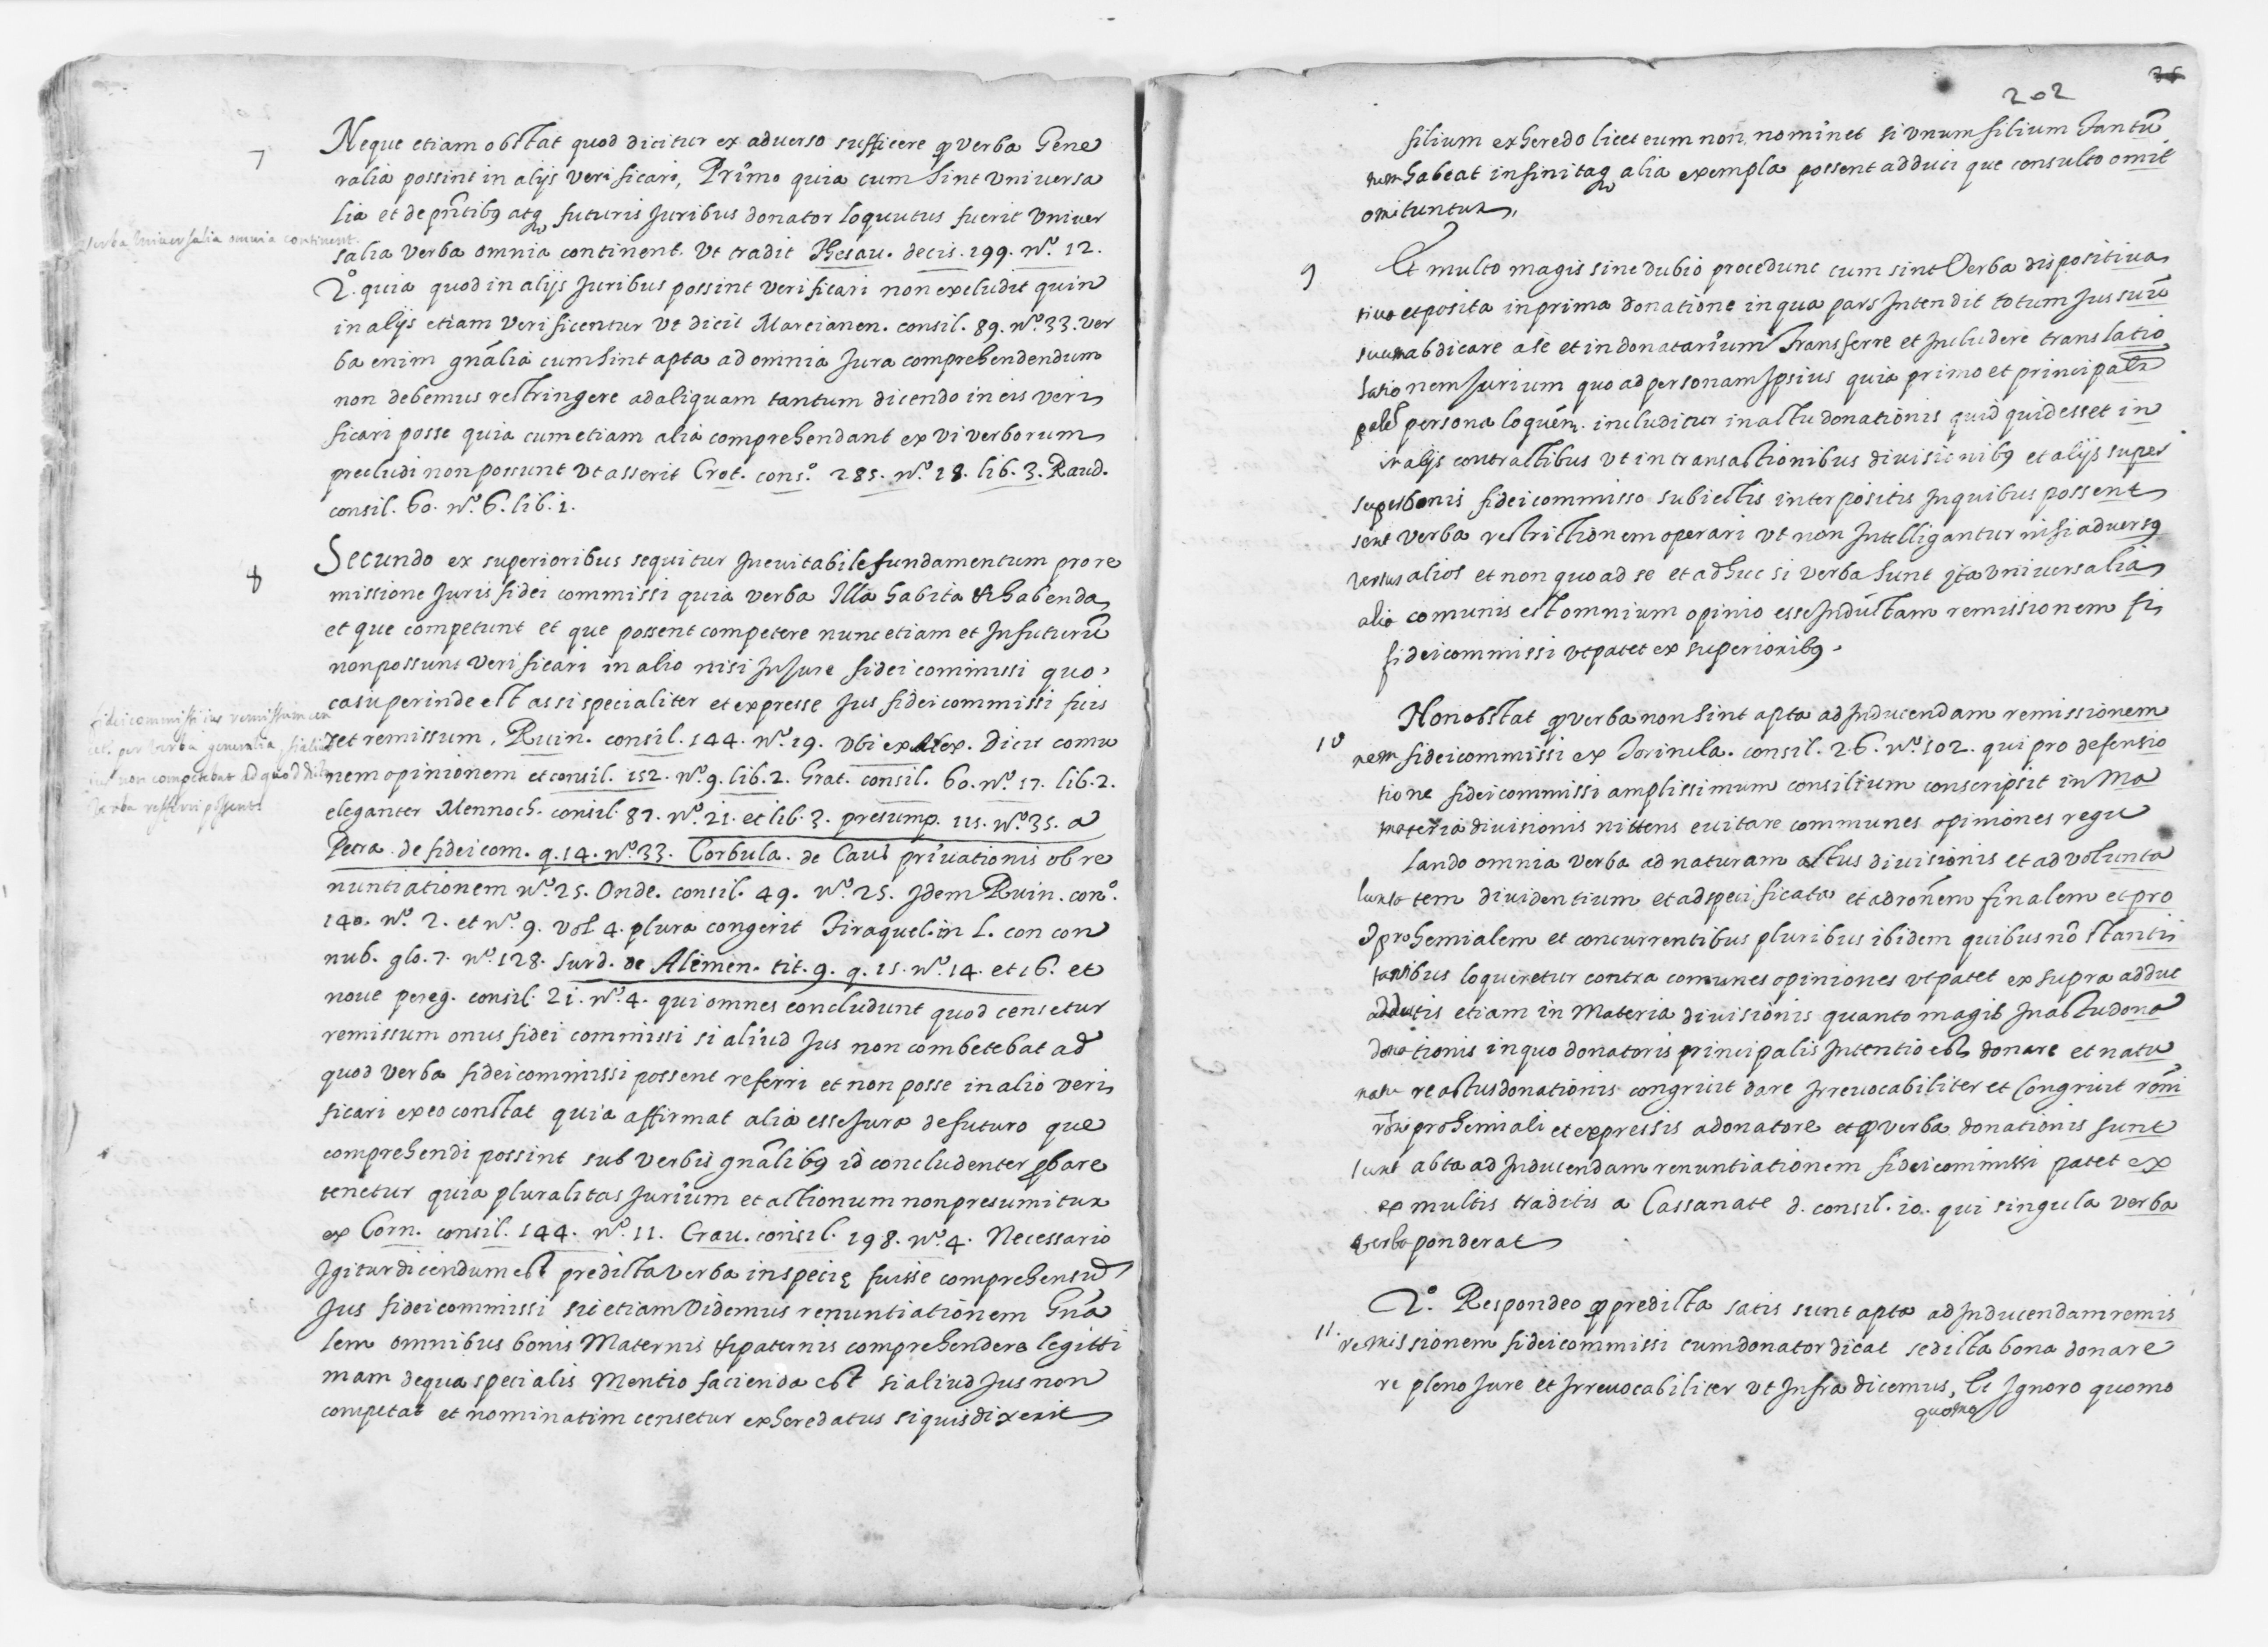 7
Neque etiam obstat quod dicitur ex aduerso sufficere q̄ verba Gene
ralia possint in alijs verificari, Primo quia cum sint vniuersa
lia et de pñtibꝰ atq̧ futuris Juribus donator loquutus fuerit vniuer
verba vniuersalia omnia continent.
salia verba omnia continent. Vt tradit Thesau. decis. 199. nº. 12.
2.º quia quod in alijs Juribus possint verificari non excludit quin
in alijs etiam verificentur vt dicit Marcianen. consil. 89. Nº. 33. ver
ba enim gnãlia cum sint apta ad omnia Jura comprehendendum
non debemus restringere ad aliquam tantum dicendo in eis veri
ficari posse quia cum etiam alia comprehendant ex vi verborum
precludi non possunt vt asserit Crot. cons.º 285. Nº. 18. lib. 3. Raud.
consil. 60. Nº. 6. lib. 1.
8
Secundo ex superioribus sequitur Jneuitabile fundamentum pro re
missione Juris fidei commissi quia verba Illa habita & habenda
et que competunt et que possent competere nunc etiam et Jn futurũ
non possunt verificari in alio nisi Jn Jure fidei commissi quo
casu perinde est as si specialiter et expresse Jus fidei commissi fuis
fideicommissi ius remissum cen
set remissum, Ruin. consil. 144. Nº. 19. Vbi ex Alex. dicit comu
set. per verba generalia, si aliud
nem opinionem et consil. 152. Nº. 9. lib. 2. Grat. consil. 60. Nº. 17. lib. 2.
ius non competebat ad quod dicta
eleganter Mennoch. consil. 87. Nº. 21. et lib. 3. presump. 115. Nº. 35. a
verba referri possent
Petra de fideicom. q. 14. Nº. 33. Corbula. de Caus privationis ob re
nuntiationem Nº. 25. Onde. consil. 49. Nº. 25. Jdem Ruin. con.º
140. Nº. 2. et Nº. 9. vol 4. plura congerit Tiraquel. in L. con con
nub. glo. 7. Nº. 128. Surd. de Alimen. tit. 9. q. 15. Nº. 14. et 16. et
noue pereg. consil. 21. Nº. 4. qui omnes concludunt quod censetur
remissum onus fidei commissi si aliud Jus non combetebat ad
quod verba fideicommissi possent referri et non posse in alio veri
ficari ex eo constat quia affirmat alia esse Jura de futuro que
comprehendi possint sub verbis gnãlibꝰ id concludenter ꝓbare
tenetur quia pluralitas Jurium et actionum non presumitur
ex Corn. consil. 144. Nº. 11. Crau. consil. 198. Nº. 4. Necessario
Jgitur dicendum est predicta verba in specie fuisse comprehensũ
Jus fideicommissi sic etiam Videmus renuntiationem Gnã
lem omnibus bonis Maternis & paternis comprehendere legitti
mam de qua specialis Mentio facienda est si aliud Jus non
competat et nominatim censetur exheredatus si quis dixerit
202
filium exheredo licet eum non nominet si vnum filium Tantũ
tum habeat infinitaq̧ alia exempla possent adduci que consulto omit
omituntur,
9
Et multo magis sine dubio procedunt cum sint Verba dispositiua
tiua et posita in prima donatione in qua pars Jntendit totum Jus suũ
suum abdicare a se et in donatarium Transferre et Jncludere translatio
latio nem Jurium quo ad personam Jpsius quia primo et principalr̃
persona loquẽn. includitur in actu donationis quid quid esset in
in alijs contractibus vt in transactionibus diuisionibꝰ et alijs super
super bonis fideicommisso subiectis interpositis Jn quibus possent
sent verba restrictionem operari vt non Jntelligantur nisi aduersꝰ
versus alios et non quo ad se et adhuc si verba sunt Jta vniuersalia
alia comunis est omnium opinio esse Jnductam remissionem fi
fideicommissi vt patet ex superioribꝰ.
10
Non obstat q̄ verba non sint apta ad Jnducendam remissionem
nem fideicommissi ex Torincla. consil. 26. Nº. 102. qui pro defensio
tione fideicommissi amplissimum consilium conscripsit in Ma
materia diuisionis nittens euitare communes opiniones regu
lando omnia verba ad naturam actus diuisionis et ad volunta
lunta tem diuidentium et ad specificata et ad rõnem finalem et pro
& prohemialem et concurrentibus pluribus ibidem quibus nõ stanti
tantibus loqueretur contra comunes opiniones vt patet ex supra adduc
adductis etiam in Materia diuisionis quanto magis Jn actu dona
donationis in quo donatoris principalis Jntentio est donare et natu
natu re actus donationis congruit dare Jrreuocabiliter et Congruit rõni
rõni prohemiali et expressis a donatore et q̄ verba donationis sunt
sunt abta ad Jnducendam renuntiationem fideicommissi patet ex
ex multis traditis a Cassanate d. consil. 10. qui singula verba
verba ponderat
11.
2.º Respondeo q̄ predicta satis sunt apta ad Jnducendam remis
remissionem fideicommissi cum donator dicat se dicta bona donare
re pleno Jure et Jrreuocabiliter vt Jnfra dicemus, Et Jgnoro quomo
quomo